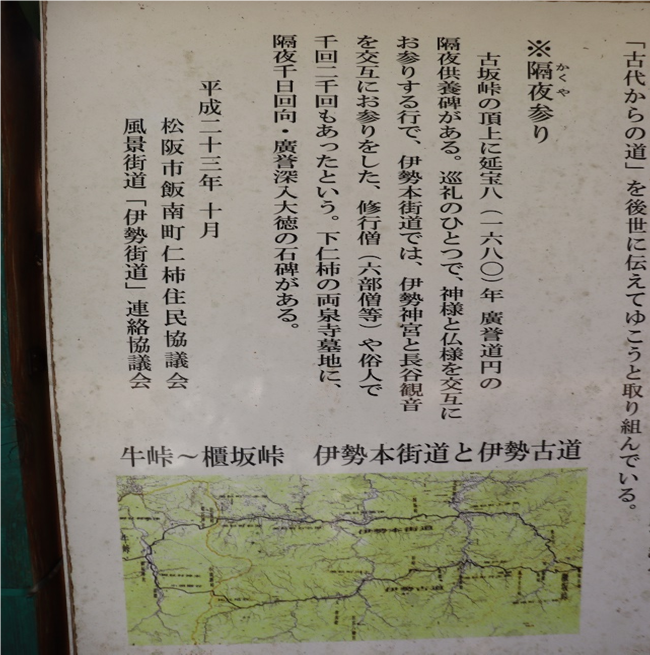 「古代からの道」を後世に伝えてゆこうと取り組んでいる。
※隔夜参り
かくや
古坂峠の頂上に延宝八（一六八〇）年 廣誉道円の
隔夜供養碑がある。巡礼のひとつで、神様と仏様を交互に
お参りする行で、伊勢本街道では、伊勢神宮と長谷観音
を交互にお参りをした、修行僧（六部僧等）や俗人で
千回二千回もあったという。下仁柿の両泉寺墓地に、
隔夜千日回向・廣誉深入大徳の石碑がある。
平成二十三年 十月
松阪市飯南町仁柿住民協議会
風景街道「伊勢街道」連絡協議会
牛峠～櫃坂峠　伊勢本街道と伊勢古道
伊勢本街道
伊勢古道
牛峠